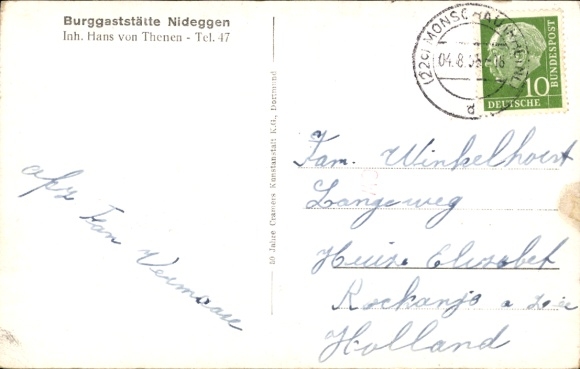 Burggaststätte Nideggen
Inh. Hans von Thenen - Tel. 47
(22c) MONSCHAU (RHEINL)
04.8.
d
10
DEUTSCHE
BUNDESPOST
50 Jahre Cramers Kunstanstalt K.G., Dortmund
Fam. Winkelhorst
Langeweg
Huize Elizabet
Rockanje a Zee
Holland
afz Fam Vermaase